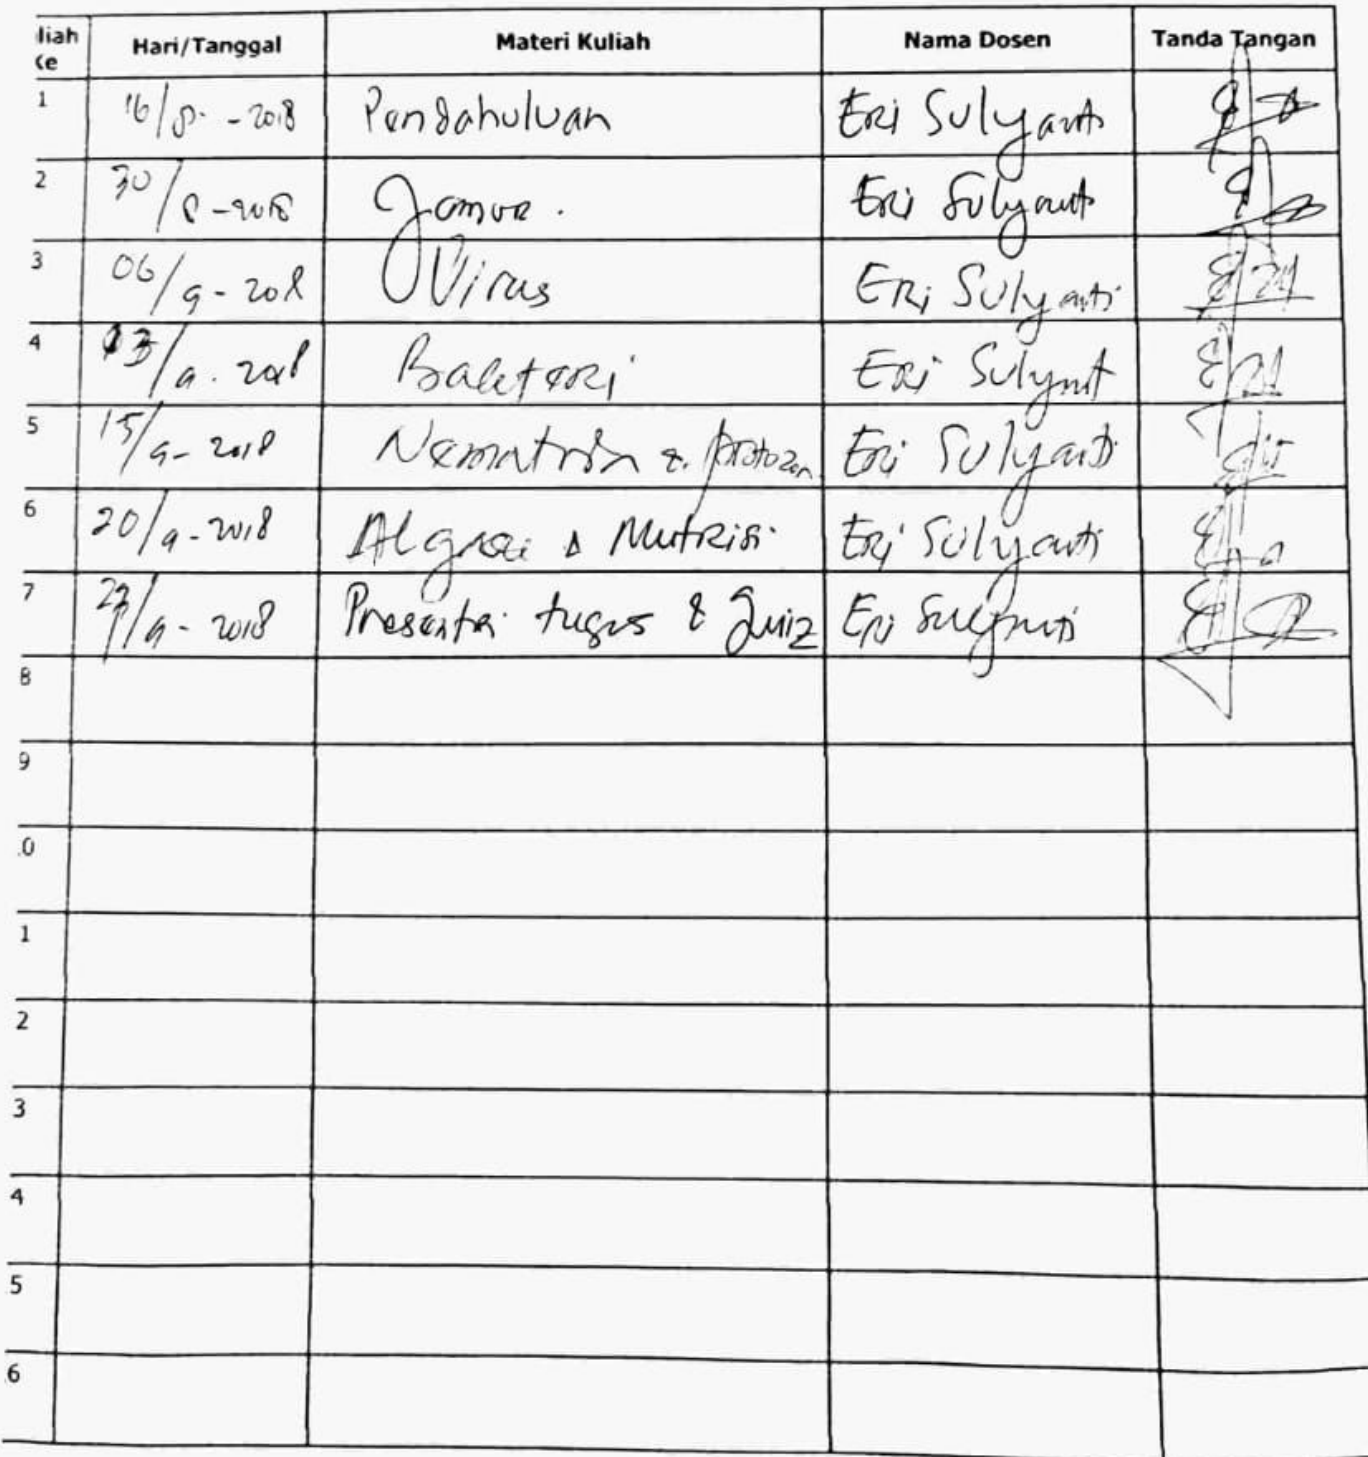 liah ke Hari/Tanggal Materi Kuliah Nama Dosen Tanda Tangan
1 16/8 - 2018 Pendahuluan Eri Sulyanti
2 30/8 - 2018 Jamur. Eri Sulyanti
3 06/9 - 2018 Virus Eri Sulyanti
4 13/9 - 2018 Bakteri Eri Sulyanti
5 15/9 - 2018 Nematoda & protozoa Eri Sulyanti
6 20/9 - 2018 Algae & Nutrisi Eri Sulyanti
7 27/9 - 2018 Presentasi tugas & Quiz Eri Sulyanti
8
9
0
1
2
3
4
5
6